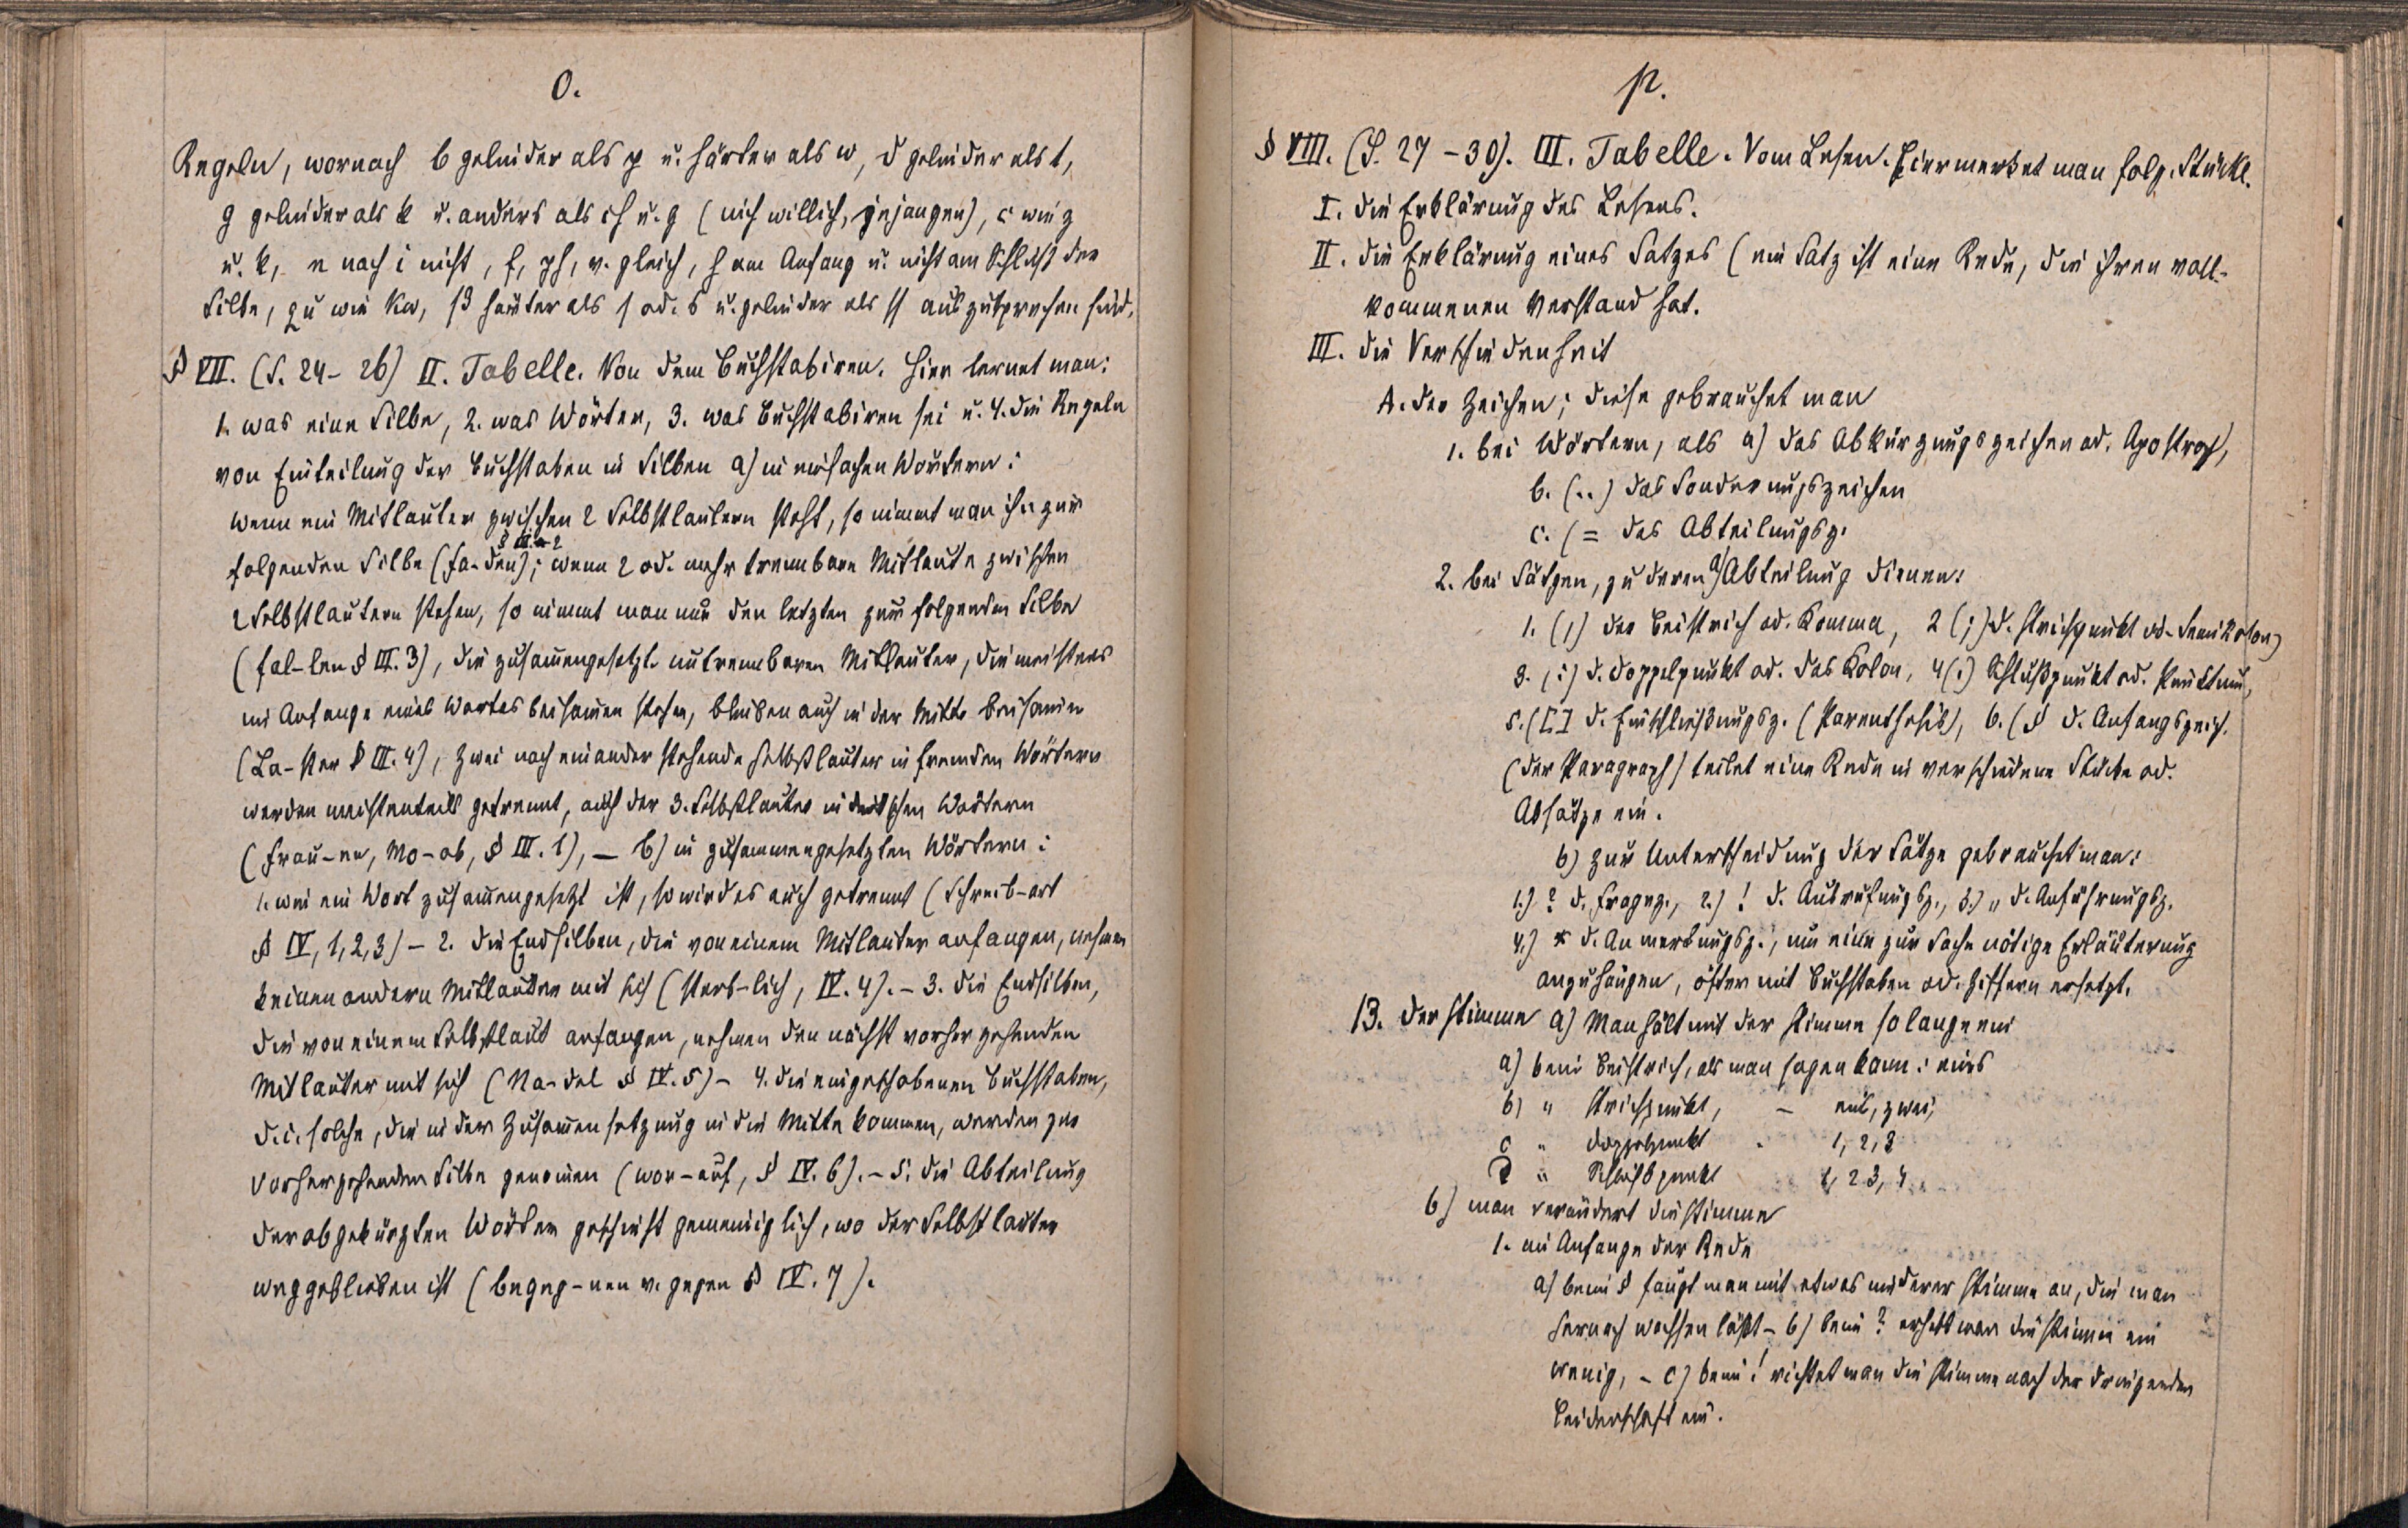 o.
Regeln, wornach b gelinder als p u. härter als w, d gelinder als t,
g gelinder als k u. anders als ch u. g (nich willich, jejangen), c wie z
u. k, e nach i nicht, f, ph, v. gleich, h am Anfang u. nicht am Schluß der
Silbe, qu wie kw, ß härter als s od. s u. gelinder als ss auszusprechen sind.
§ VII. (S. 24–26) II. Tabelle. Von dem Buchstabiren. Hier lernet man:
1. was eine Silbe, 2. was Wörter, 3. was Buchstabiren sei u. 4. die Regeln
von Einteilung der Buchstaben in Silben a) in einfachen Wörtern:
wenn ein Mitlauter zwischen 2 Selbstlautern steht, so nimmt man ihn zur
§ III. 2
folgenden Silbe (Fa-den); wenn 2 od. mehr trennbare Mitlaute zwischen
2 Selbstlautern stehen, so nimmt man nur den letzten zur folgenden Silbe
(fal-len § III. 3), die zusammengesetzt. untrennbaren Mitlauter, die meistens
im Anfange eines Wortes beisammen stehen, bleiben auch in der Mitte beisamen
(La-ster § III. 4), zwei nach einander stehende Selbstlauter in fremden Wörtern
werden meistenteils getrennt, auch der 3. Selbstlauter in deutschen Wörtern
(Frau-en, Mo-ab, § III. 1), – b) in zusammengesetzten Wörtern:
1. wie ein Wort zusammengesetzt ist, so wird es auch getrennt (Schreib-art
§ IV, 1, 2, 3) – 2. die Endsilben, die von einem Mitlauter anfangen, nehmen
keinen andern Mitlauter mit sich (sterb-lich, IV. 4). – 3. die Endsilben,
die von einem Selbstlaut anfangen, nehmen den nächst vorher gehenden
Mitlauter mit sich (Na-del § IV. 5) – 4. die eingeschobenen Buchstaben,
d. i. solche, die in der Zusammensetzung in die Mitte kommen, werden zur
vorhergehenden Silbe genommen (wor-auf, § IV. 6). – 5. die Abteilung
der abgekürzten Wörter geschieht gemeiniglich, wo der Selbstlauter
weggeblieben ist (begeg-nen v. gegen § IV. 7).
p.
§ VIII. (S. 27–30). III. Tabelle. Vom Lesen. Hier merket man folg. Stücke.
I. die Erklärung des Lesens.
II. die Erklärung eines Satzes (ein Satz ist eine Rede, die ihren voll-
kommenen Verstand hat.
III. die Verschiedenheit
A. der Zeichen; diese gebrauchet man
1. bei Wörtern, als a) das Abkürzungszeichen od. Apostroph,
b. (..) das Sonderungszeichen
c. (= das Abteilungsz.
2. bei Sätzen, zu deren a) Abteilung dienen:
1. (,) der Beistrich od. Komma, 2 (;) d. Strichpunkt od. Semikolon,
3. (:) d. Doppelpunkt od. das Kolon, 4 (.) Schlußpunkt od. Punktum,
5. ([] d. Einschließungsz. (Parenthesis), 6. (§ d. Anfangszeich.
(der Paragraph) teilet eine Rede in verschiedene Stücke od.
Absätze ein.
b) zur Unterscheidung der Sätze gebrauchet man:
1.) ? d. Fragez., 2.) ! d. Ausrufungsz., 3.) „ d. Anführungsz.
4.) * d. Anmerkungsz., um eine zur Sache nötige Erläuterung
anzuhängen, öfter mit Buchstaben od. Ziffern ersetzt.
B. der Stimme a) Man hält mit der Stimme so lange ein
a) beim Beistrich, als man sagen kann: eins
b) " Strichpunkt, – eins, zwei,
c " Doppelpunkt . 1, 2, 3
d " Schlußpunkt 1, 2 3, 4
b) man verändert die Stimme
1. im Anfange der Rede
a) beim § fängt man mit etwas niederer Stimme an, die man
hernach wachsen läßt – b) beim ? erhebt man die Stimme ein
wenig, – c) beim ! richtet man die Stimme nach der dringenden
Leidenschaft ein.